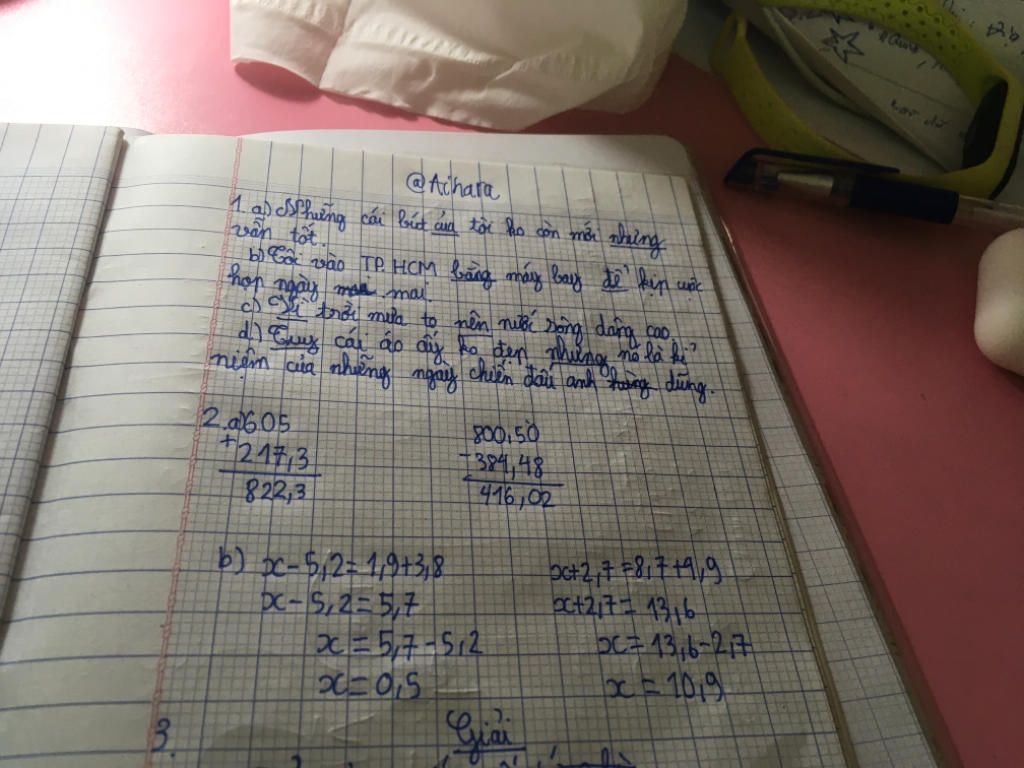 @Aihara
1. a) Những cái bút của tôi ko còn mới nhưng
vẫn tốt.
b) Tôi vào TP.HCM bằng máy bay để kịp cuộc
họp ngày mai.
c) Vì trời mưa to nên nước sông dâng cao.
d) Tuy cái áo ấy ko đẹp nhưng nó là kỉ
niệm của những ngày chiến đấu anh dũng.
2.a) 605 800,50
+ 217,3 - 384,48
822,3 416,02
b) x - 5,2 = 1,9 + 3,8 x + 2,7 = 8,7 + 4,9
x - 5,2 = 5,7 x + 2,7 = 13,6
x = 5,7 - 5,2 x = 13,6 - 2,7
x = 0,5 x = 10,9
3. Giải